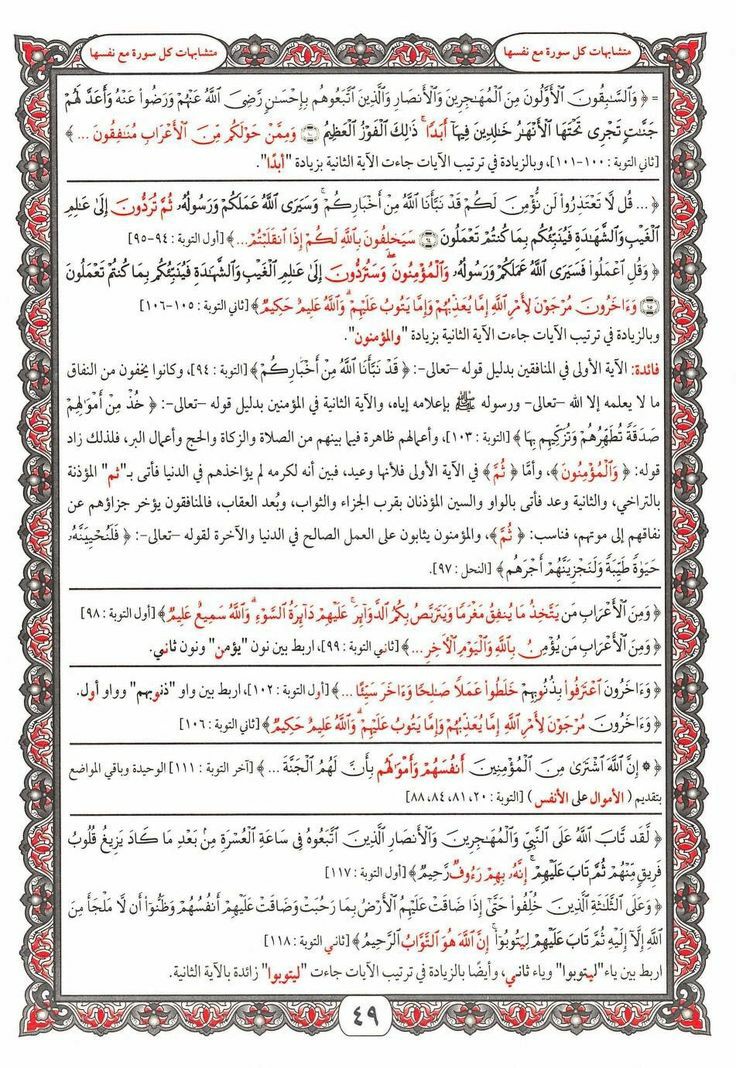 متشابهات كل سورة مع نفسها
متشابهات كل سورة مع نفسها
= ﴿ وَٱلسَّٰبِقُونَ ٱلْأَوَّلُونَ مِنَ ٱلْمُهَٰجِرِينَ وَٱلْأَنصَارِ وَٱلَّذِينَ ٱتَّبَعُوهُم بِإِحْسَٰنٍ رَّضِيَ ٱللَّهُ عَنْهُمْ وَرَضُوا۟ عَنْهُ وَأَعَدَّ لَهُمْ
جَنَّٰتٍ تَجْرِى تَحْتَهَا ٱلْأَنْهَٰرُ خَٰلِدِينَ فِيهَآ أَبَدًا ۚ ذَٰلِكَ ٱلْفَوْزُ ٱلْعَظِيمُ ۝١٠٠ وَمِمَّنْ حَوْلَكُم مِّنَ ٱلْأَعْرَابِ مُنَٰفِقُونَ ... ﴾
[ثاني التوبة : ١٠٠-١٠١]، وبالزيادة في ترتيب الآيات جاءت الآية الثانية بزيادة "أبدًا".
﴿ ... قُل لَّا تَعْتَذِرُوا۟ لَن نُّؤْمِنَ لَكُمْ قَدْ نَبَّأَنَا ٱللَّهُ مِنْ أَخْبَارِكُمْ ۚ وَسَيَرَى ٱللَّهُ عَمَلَكُمْ وَرَسُولُهُۥ ثُمَّ تُرَدُّونَ إِلَىٰ عَٰلِمِ
ٱلْغَيْبِ وَٱلشَّهَٰدَةِ فَيُنَبِّئُكُم بِمَا كُنتُمْ تَعْمَلُونَ ۝٩٤ سَيَحْلِفُونَ بِٱللَّهِ لَكُمْ إِذَا ٱنقَلَبْتُمْ...﴾ [أول التوبة : ٩٤-٩٥]
﴿ وَقُلِ ٱعْمَلُوا۟ فَسَيَرَى ٱللَّهُ عَمَلَكُمْ وَرَسُولُهُۥ وَٱلْمُؤْمِنُونَ ۖ وَسَتُرَدُّونَ إِلَىٰ عَٰلِمِ ٱلْغَيْبِ وَٱلشَّهَٰدَةِ فَيُنَبِّئُكُم بِمَا كُنتُمْ تَعْمَلُونَ
۝١٠٥ وَءَاخَرُونَ مُرْجَوْنَ لِأَمْرِ ٱللَّهِ إِمَّا يُعَذِّبُهُمْ وَإِمَّا يَتُوبُ عَلَيْهِمْ ۗ وَٱللَّهُ عَلِيمٌ حَكِيمٌ﴾ [ثاني التوبة : ١٠٥-١٠٦]
وبالزيادة في ترتيب الآيات جاءت الآية الثانية بزيادة "والمؤمنون".
فائدة: الآية الأولى في المنافقين بدليل قوله -تعالى-: ﴿ قَدْ نَبَّأَنَا ٱللَّهُ مِنْ أَخْبَارِكُمْ ﴾ [التوبة : ٩٤]، وكانوا يخفون من النفاق
ما لا يعلمه إلا الله -تعالى- ورسوله ﷺ بإعلامه إياه، والآية الثانية في المؤمنين بدليل قوله -تعالى-: ﴿ خُذْ مِنْ أَمْوَٰلِهِمْ
صَدَقَةً تُطَهِّرُهُمْ وَتُزَكِّيهِم بِهَا ﴾ [التوبة : ١٠٣]، وأعمالهم ظاهرة فيما بينهم من الصلاة والزكاة والحج وأعمال البر، فلذلك زاد
قوله: ﴿ وَٱلْمُؤْمِنُونَ ﴾، وأمَّا ﴿ ثُمَّ ﴾ في الآية الأولى فلأنها وعيد، فبين أنه لكرمه لم يؤاخذهم في الدنيا فأتى بـ"ثم" المؤذنة
بالتراخي، والثانية وعد فأتى بالواو والسين المؤذنان بقرب الجزاء والثواب، وبُعد العقاب، فالمنافقون يؤخر جزاؤهم عن
نفاقهم إلى موتهم، فناسب: ﴿ ثُمَّ ﴾، والمؤمنون يثابون على العمل الصالح في الدنيا والآخرة لقوله -تعالى-: ﴿ فَلَنُحْيِيَنَّهُۥ
حَيَوٰةً طَيِّبَةً وَلَنَجْزِيَنَّهُمْ أَجْرَهُم ﴾ [النحل : ٩٧].
﴿ وَمِنَ ٱلْأَعْرَابِ مَن يَتَّخِذُ مَا يُنفِقُ مَغْرَمًا وَيَتَرَبَّصُ بِكُمُ ٱلدَّوَآئِرَ ۚ عَلَيْهِمْ دَآئِرَةُ ٱلسَّوْءِ ۗ وَٱللَّهُ سَمِيعٌ عَلِيمٌ﴾ [أول التوبة : ٩٨]
﴿ وَمِنَ ٱلْأَعْرَابِ مَن يُؤْمِنُ بِٱللَّهِ وَٱلْيَوْمِ ٱلْءَاخِرِ ... ﴾ [ثاني التوبة : ٩٩]، اربط بين نون "يؤمن" ونون ثاني.
﴿ وَءَاخَرُونَ ٱعْتَرَفُوا۟ بِذُنُوبِهِمْ خَلَطُوا۟ عَمَلًا صَٰلِحًا وَءَاخَرَ سَيِّئًا ... ﴾ [أول التوبة : ١٠٢]، اربط بين واو "ذنوبهم" وواو أول.
﴿ وَءَاخَرُونَ مُرْجَوْنَ لِأَمْرِ ٱللَّهِ إِمَّا يُعَذِّبُهُمْ وَإِمَّا يَتُوبُ عَلَيْهِمْ ۗ وَٱللَّهُ عَلِيمٌ حَكِيمٌ﴾ [ثاني التوبة : ١٠٦]
﴿ ۞ إِنَّ ٱللَّهَ ٱشْتَرَىٰ مِنَ ٱلْمُؤْمِنِينَ أَنفُسَهُمْ وَأَمْوَٰلَهُم بِأَنَّ لَهُمُ ٱلْجَنَّةَ ... ﴾ [آخر التوبة : ١١١] الوحيدة وباقي المواضع
بتقديم ( الأموال على الأنفس ) [التوبة : ٢٠، ٨١، ٨٤، ٨٨]
﴿ لَّقَد تَّابَ ٱللَّهُ عَلَى ٱلنَّبِيِّ وَٱلْمُهَٰجِرِينَ وَٱلْأَنصَارِ ٱلَّذِينَ ٱتَّبَعُوهُ فِى سَاعَةِ ٱلْعُسْرَةِ مِنۢ بَعْدِ مَا كَادَ يَزِيغُ قُلُوبُ
فَرِيقٍ مِّنْهُمْ ثُمَّ تَابَ عَلَيْهِمْ ۚ إِنَّهُۥ بِهِمْ رَءُوفٌ رَّحِيمٌ﴾ [أول التوبة : ١١٧]
﴿ وَعَلَى ٱلثَّلَٰثَةِ ٱلَّذِينَ خُلِّفُوا۟ حَتَّىٰٓ إِذَا ضَاقَتْ عَلَيْهِمُ ٱلْأَرْضُ بِمَا رَحُبَتْ وَضَاقَتْ عَلَيْهِمْ أَنفُسُهُمْ وَظَنُّوٓا۟ أَن لَّا مَلْجَأَ مِنَ
ٱللَّهِ إِلَّآ إِلَيْهِ ثُمَّ تَابَ عَلَيْهِمْ لِيَتُوبُوٓا۟ ۚ إِنَّ ٱللَّهَ هُوَ ٱلتَّوَّابُ ٱلرَّحِيمُ﴾ [ثاني التوبة : ١١٨]
اربط بين ياء "ليتوبوا" وياء ثاني، وأيضًا بالزيادة في ترتيب الآيات جاءت "ليتوبوا" زائدة بالآية الثانية.
٤٩